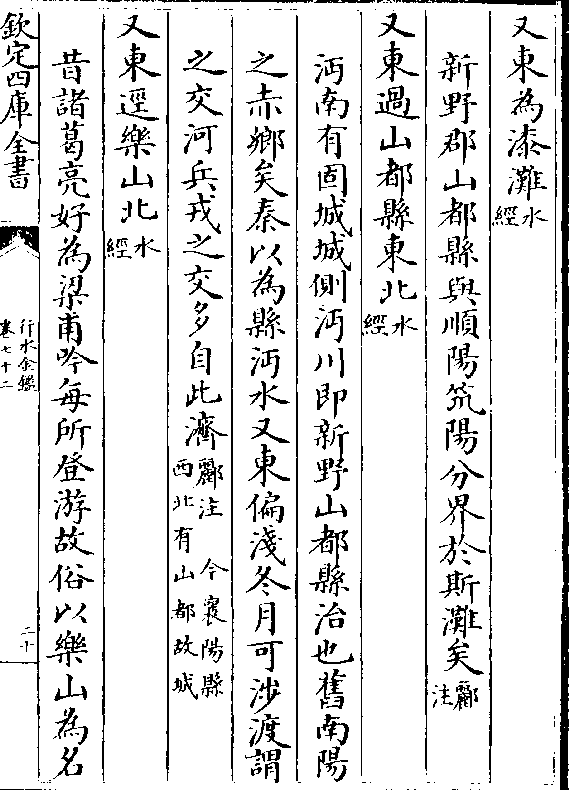 又東為漆灘水經
新野郡山都縣與順陽筑陽分界於斯灘矣酈注
又東過山都縣東北水經
沔南有固城城側沔川即新野山都縣治也舊南陽
之赤鄉矣秦以為縣沔水又東偏淺冬月可涉渡謂
之交河兵戎之交多自此濟酈注　今襄陽縣西北有山都故城
又東逕樂山北水經
昔諸葛亮好為梁甫吟每所登游故俗以樂山為名
欽定四庫全書
行水金鑑
卷七十二
二十